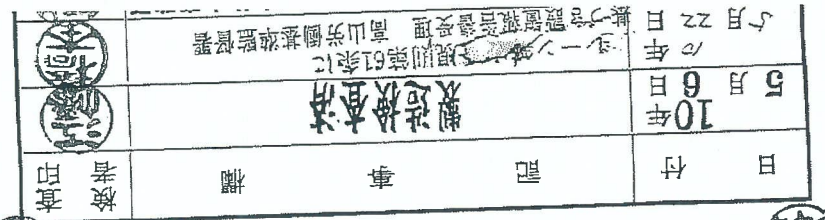 日付 記事欄 検査
者印
10年
5月6日 製造検査済
10年 クレーン等 規則第61条に
5月22日 基づき設置報告書受理 高山労働基準監督署